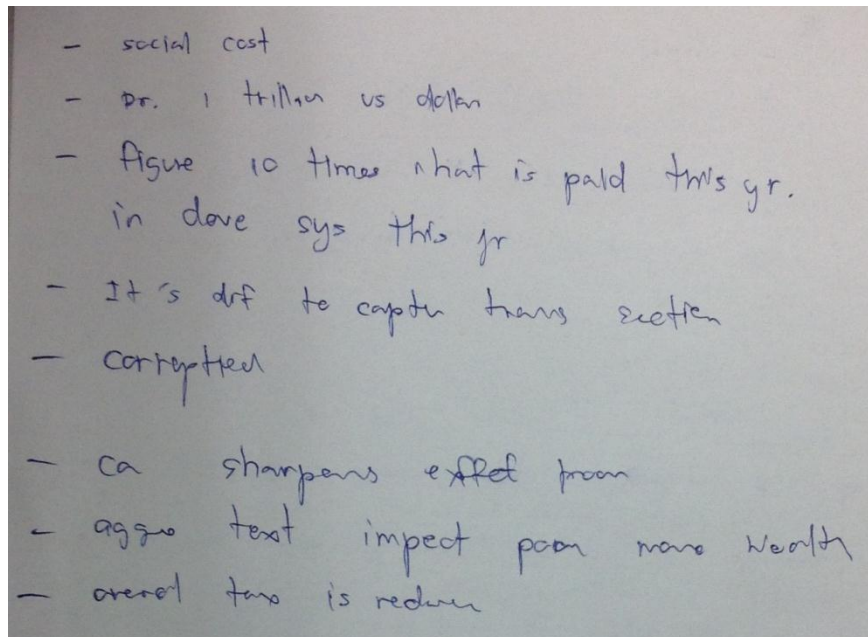 - social cost
- Dr. 1 trillion us dollar
- figure 10 times what is paid this yr.
in deve sys this yr
- It's dif to captu trans section
- corruption
- ca sharpens effect poor
- aggre text impect poor more wealth
- overal tax is reduce